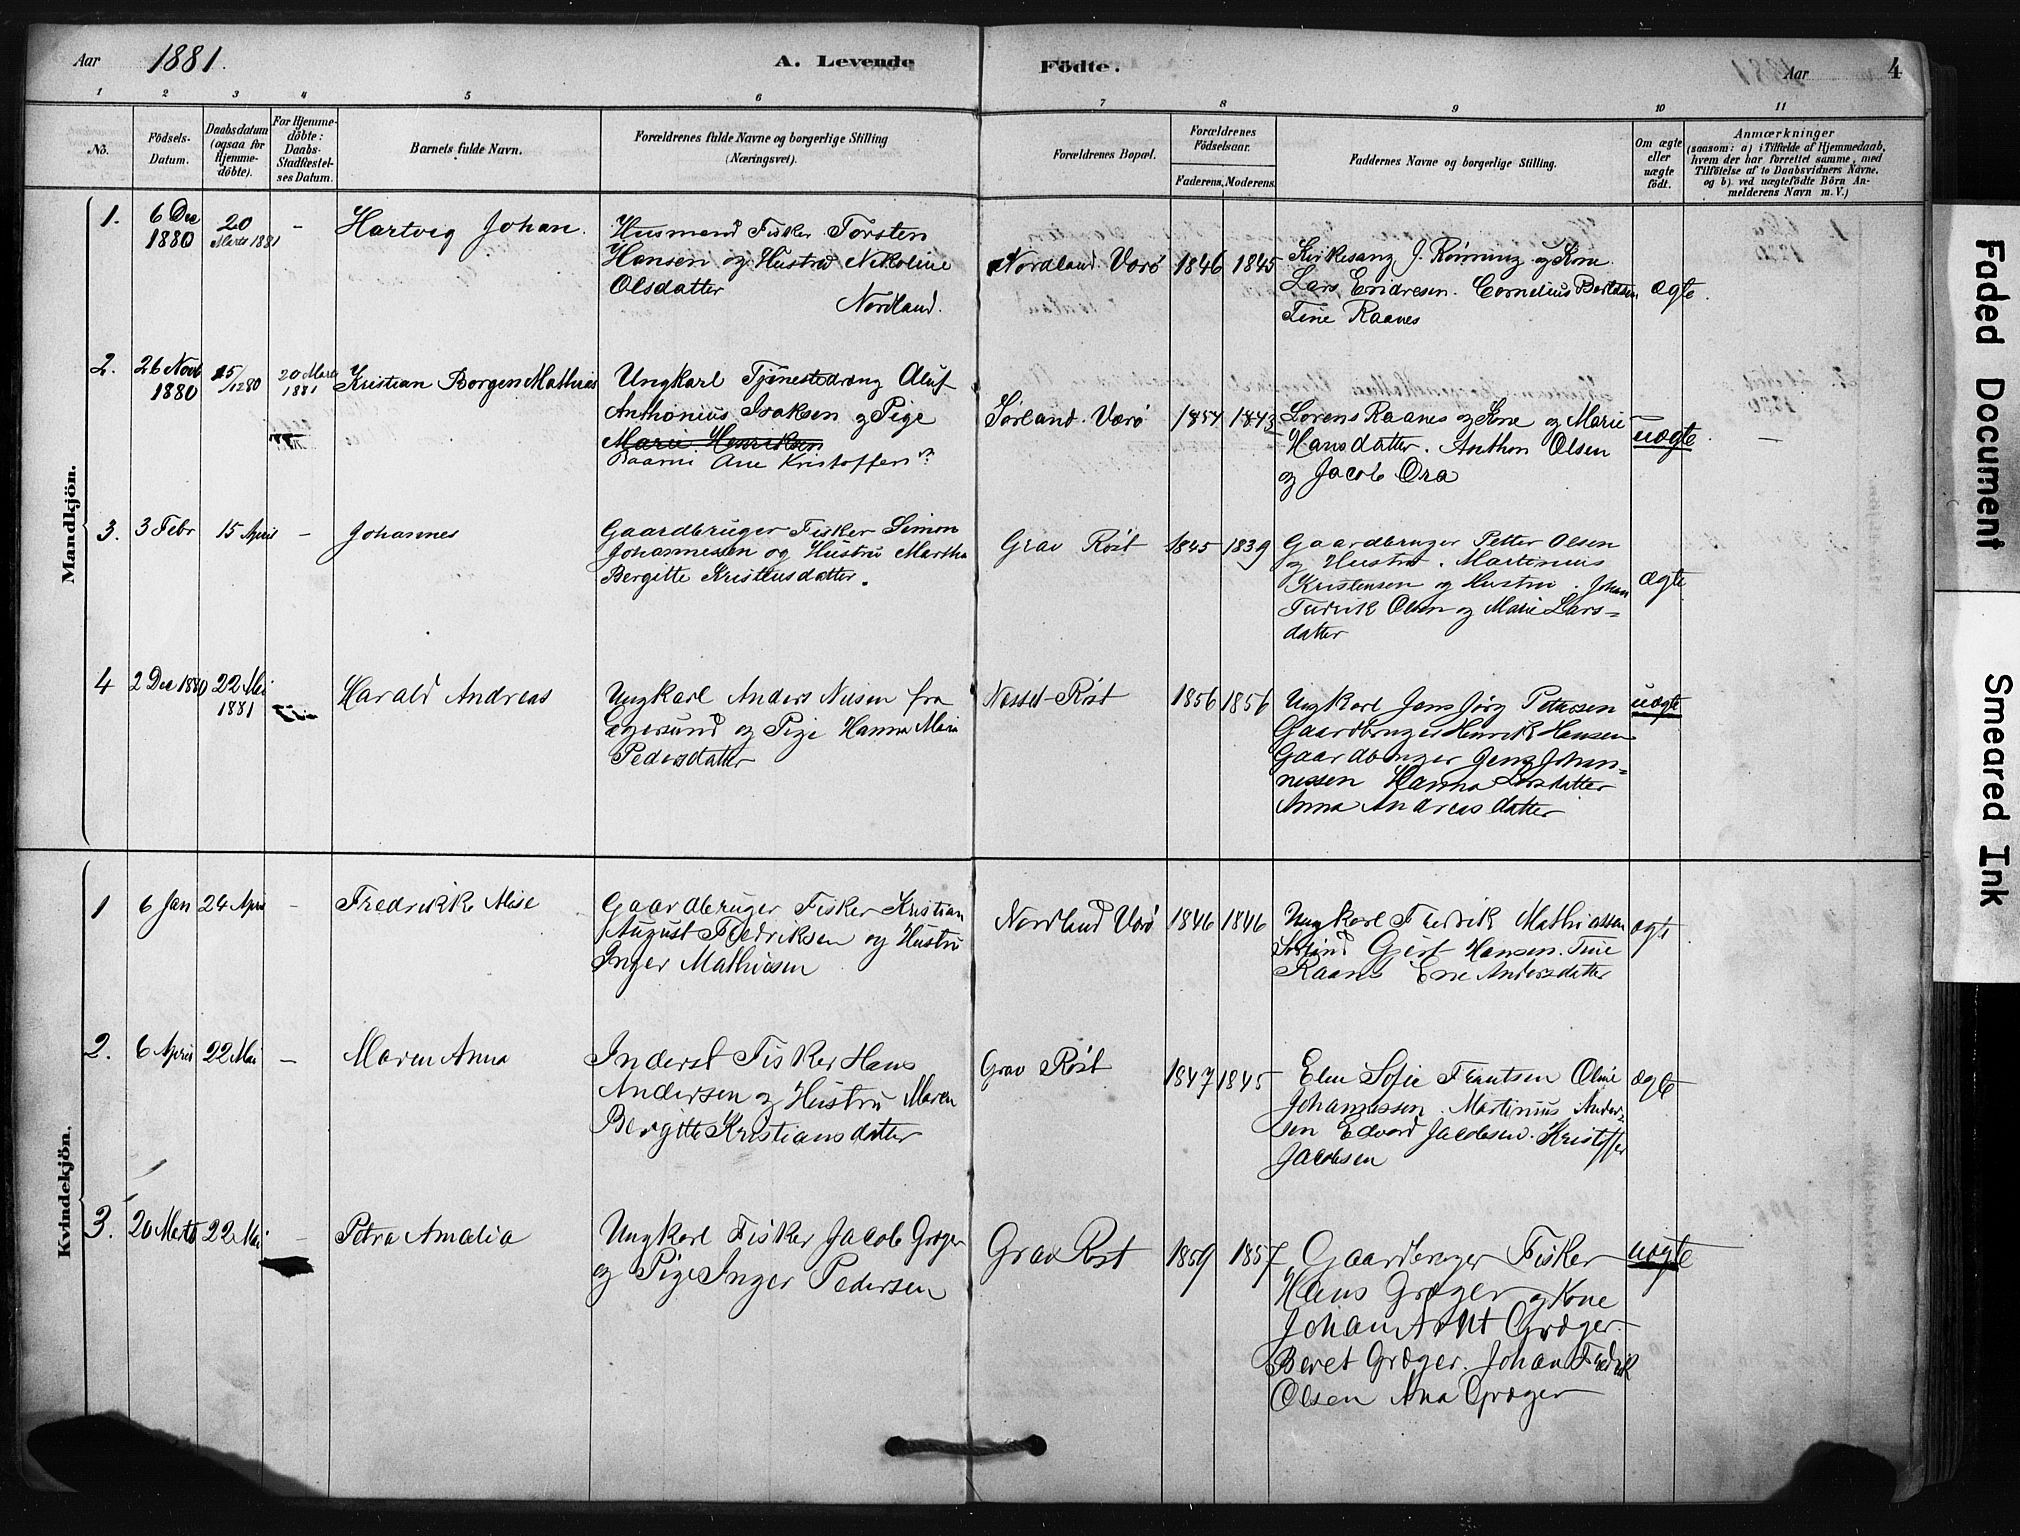 Aar 1881. A. Levende Födte. Aar 4
1 2 3 4 5 6 7 8 9 10 11
No. Födsels-Datum. Daabsdatum (ogsaa for Hjemme-döbte). For Hjemme-döbte: Daabs-Stadfæstel-ses Datum. Barnets fulde Navn. Forældrenes fulde Navne og borgerlige Stilling (Næringsvei). Forældrenes Bopæl. Forældrenes Födselsaar. Faderens. Moderens. Faddernes Navne og borgerlige Stilling. Om ægte eller uægte födt. Anmærkninger (saasom: a) i Tilfælde af Hjemmedaab, hvem der har forrettet samme, med Tilföielse af to Daabsvidners Navne, og b) ved uægtefödte Börn An-melderens Navn m. V.)
Mandkjön.
1. 6 Dec 1880 20 Marts 1881 - Hartvig Johan.
Husmand Fisker Torsten
Hansen og Hustru Nikoline
Olsdatter
Nordland.
Nordland Værö 1846 1845
Kirkesang. J. Rønning og Kone
Lars Endresen. Cornelius Bertsen
Tine Raanes
ægte.
2. 26 Novb 1880 15/12 80 20 Marts 1881 Kristian Borgen Mathias
Ungkarl Tjenestedreng Oluf
Anthonius Isaksen og Pige
Marie Henriksen
Ane Kristoffen
Sørland. Værö 1854 1843
Lorens Raanes og Kone og Marie
Hansdatter. Anthon Olsen
og Jacob Ora
uægte. -
3. 3 Febr 15 April - Johannes
Gaardbruger Fisker Simon
Johannessen og Hustru Martha
Bergitte Kristensdatter.
Grav Röst 1845 1839
Gaardbruger Petter Olsen
og Hustru. Martinius
Kristensen og Hustru. Johan
Fredrik Olsen og Marie Lars=
datter
ægte
4 2 Dec 1880 22 Mai 1881 Harald Andreas
Ungkarl Anders Nilsen fra
Egersund og Pige Hanna Maria
Pedersdatter
Nesset Röst 1856 1856
Ungkarl Jens Jørg Petersen
Gaardbruger Henrik Hansen
Gaardbruger Jens Johan=
nessen Hanna Larsdatter
Anna Andreasdatter
uægte
Kvindekjön.
1 6 Jan 24 April - Fredrikke Alise
Gaardbruger Fisker Kristian
August Fredriksen og Hustru
Inger Mathiesen
Nordland Værö 1846 1846
Ungkarl Fredrik Mathiassen
Sørland Gjert Hansen. Tine
Raanes Ene Andersdatter
ægte
2. 6 April 22 Mai - Maren Anna
Inderst Fisker Hans
Andersen og Hustru Maren
Bergitte Kristiansdatter
Grav Röst 1847 1845
Elen Sofie Frantsen Oline
Johannessen. Martinius Ander-
sen Edvard Jacobsen. Kristoffer
Jacobsen
ægte
3. 20 Marts 22 Mai - Petra Amalia
Ungkarl Fisker Jacob Grøger
og Pige Inger Pedersen
Grav Röst 1859 1857
Gaardbruger Fisker
Hans Grøger og Kone
Johan Arnt Grøger.
Beret Grøger. Johan Fredrik
Olsen Ana Grøger
uægte
Faded Document
Smeared Ink